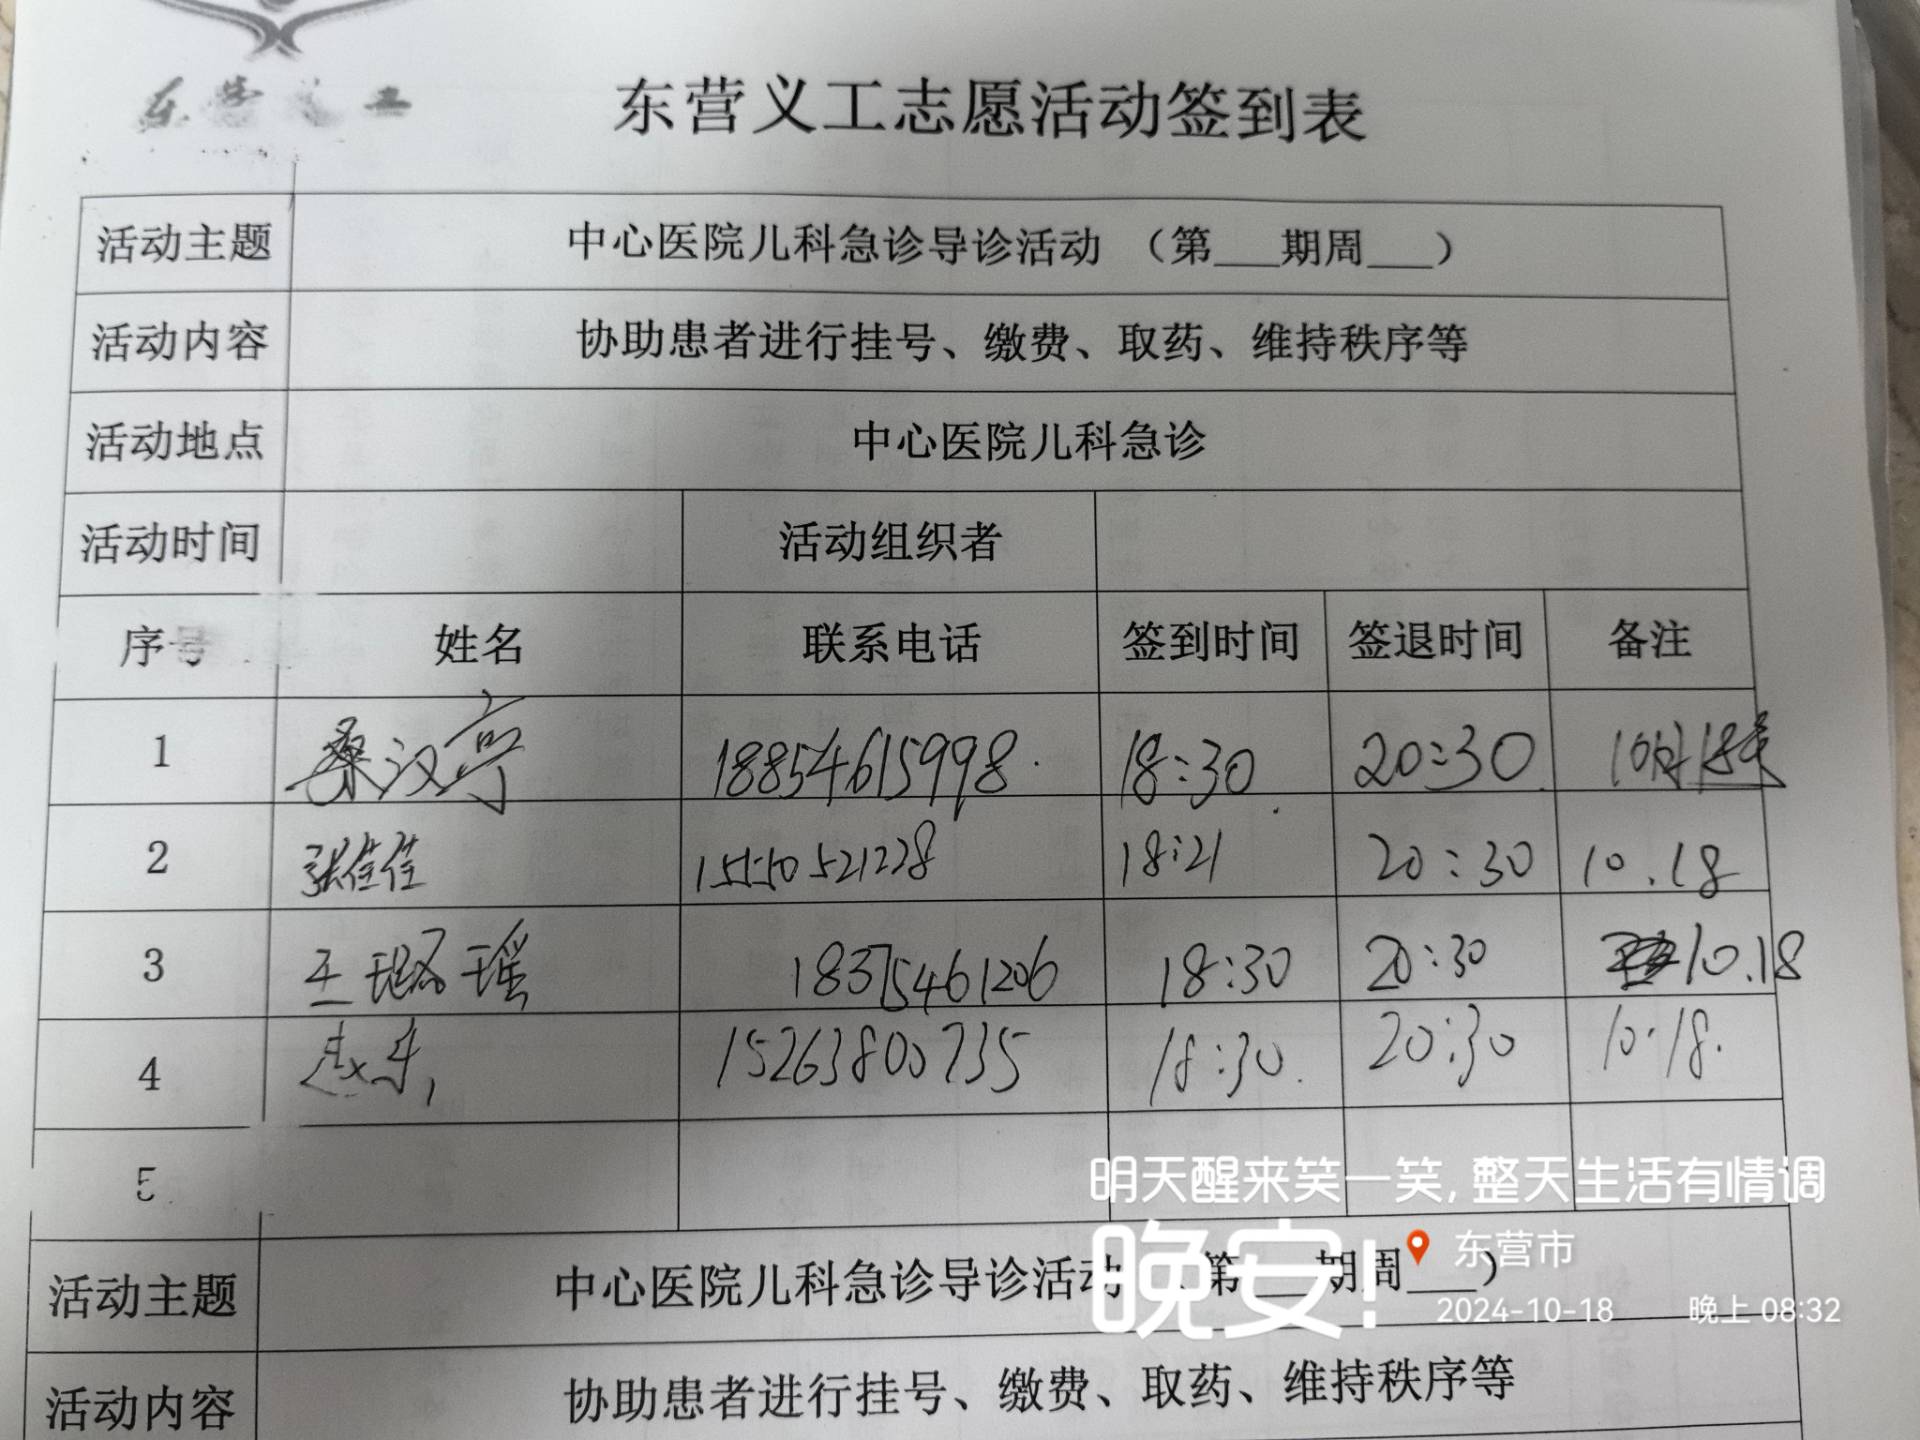 东营义工
东营义工志愿活动签到表
活动主题 中心医院儿科急诊导诊活动 （第___期周___）
活动内容 协助患者进行挂号、缴费、取药、维持秩序等
活动地点 中心医院儿科急诊
活动时间 活动组织者
序号 姓名 联系电话 签到时间 签退时间 备注
1 桑汉亭 18854615998 18:30 20:30 10月18号
2 张佳佳 15550521228 18:21 20:30 10.18
3 王璐瑶 18375461206 18:30 20:30 10.18
4 赵 15263800735 18:30 20:30 10.18.
5
明天醒来笑一笑，整天生活有情调
晚安！ 东营市
2024-10-18 晚上 08:32
活动主题 中心医院儿科急诊导诊活动 第___期周___）
活动内容 协助患者进行挂号、缴费、取药、维持秩序等